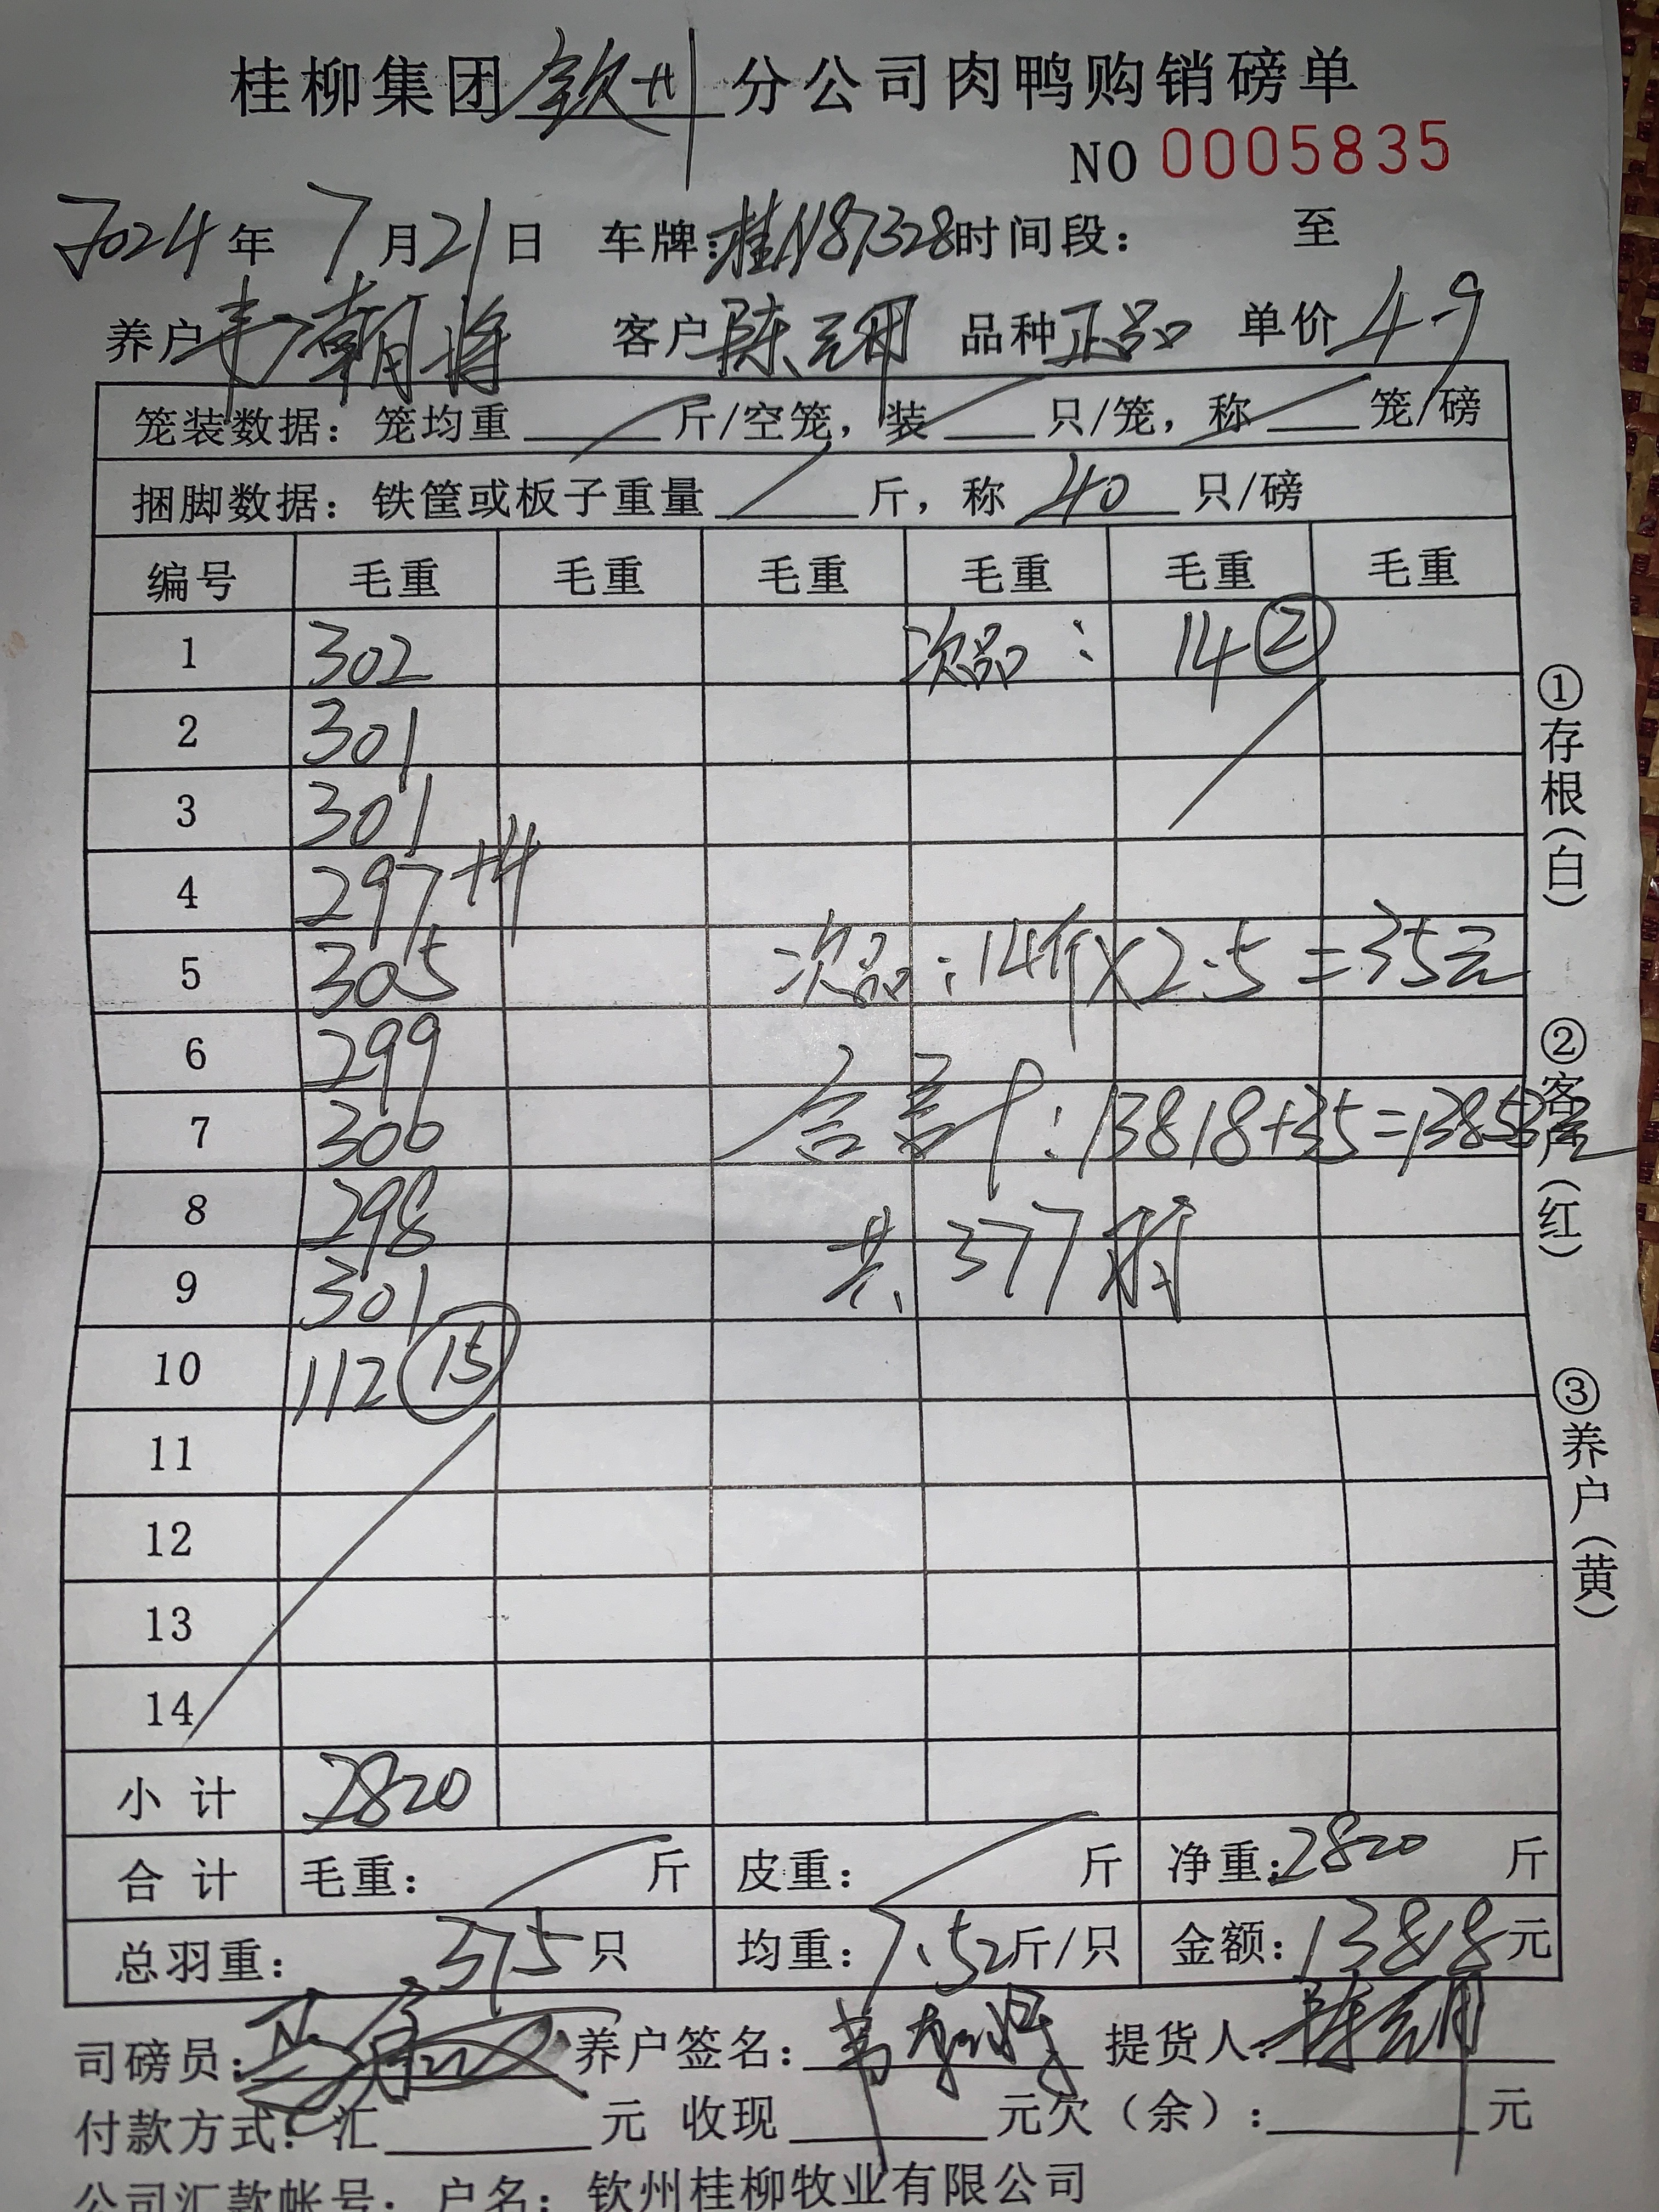 桂柳集团钦州分公司肉鸭购销磅单
NO 0005835
2024年 7月21日 车牌:桂N87328时间段: 至
养户 朝将 客户 陈 品种 正品 单价 4.9
笼装数据: 笼均重 斤/空笼, 装 只/笼, 称 笼/磅
捆脚数据: 铁筐或板子重量 斤, 称 40 只/磅
编号 毛重 毛重 毛重 毛重 毛重 毛重
1 302 次品: 14 ②
2 301
3 301
4 297+4
5 305 次品:14斤×2.5=35元
6 299
7 300 合计:13818+35=13853元
8 298
9 301 共377只
10 112 ⑮
11
12
13
14
小计 2820
合计 毛重: 斤 皮重: 斤 净重:2820 斤
总羽重: 375只 均重:7.52斤/只 金额:13818元
司磅员: 养户签名: 提货人: 陈
付款方式: 汇 元 收现 元欠(余): 元
公司汇款帐号: 户名: 钦州桂柳牧业有限公司
①存根(白)
②客户(红)
③养户(黄)